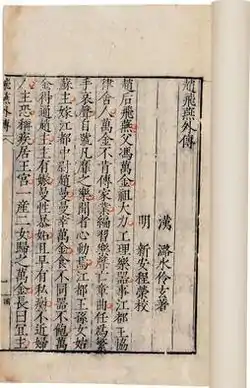 趙飛燕外傳
漢 潞水伶玄著
明 新安程榮校
趙后飛燕父馮萬金祖大力工理樂器事江都王協
律舍人萬金不肯傳家業編習樂聲亡章曲任為繁
手哀聲自號凡靡之樂聞者心動焉江都王孫女姑
蘇主嫁江都中尉趙曼曼幸萬金食不同器不飽萬
金得通趙主主有娠曼性暴妬且早有私病不近婦
人主恐稱疾居王宮一產二女歸之萬金長曰宜主
飛燕外傳